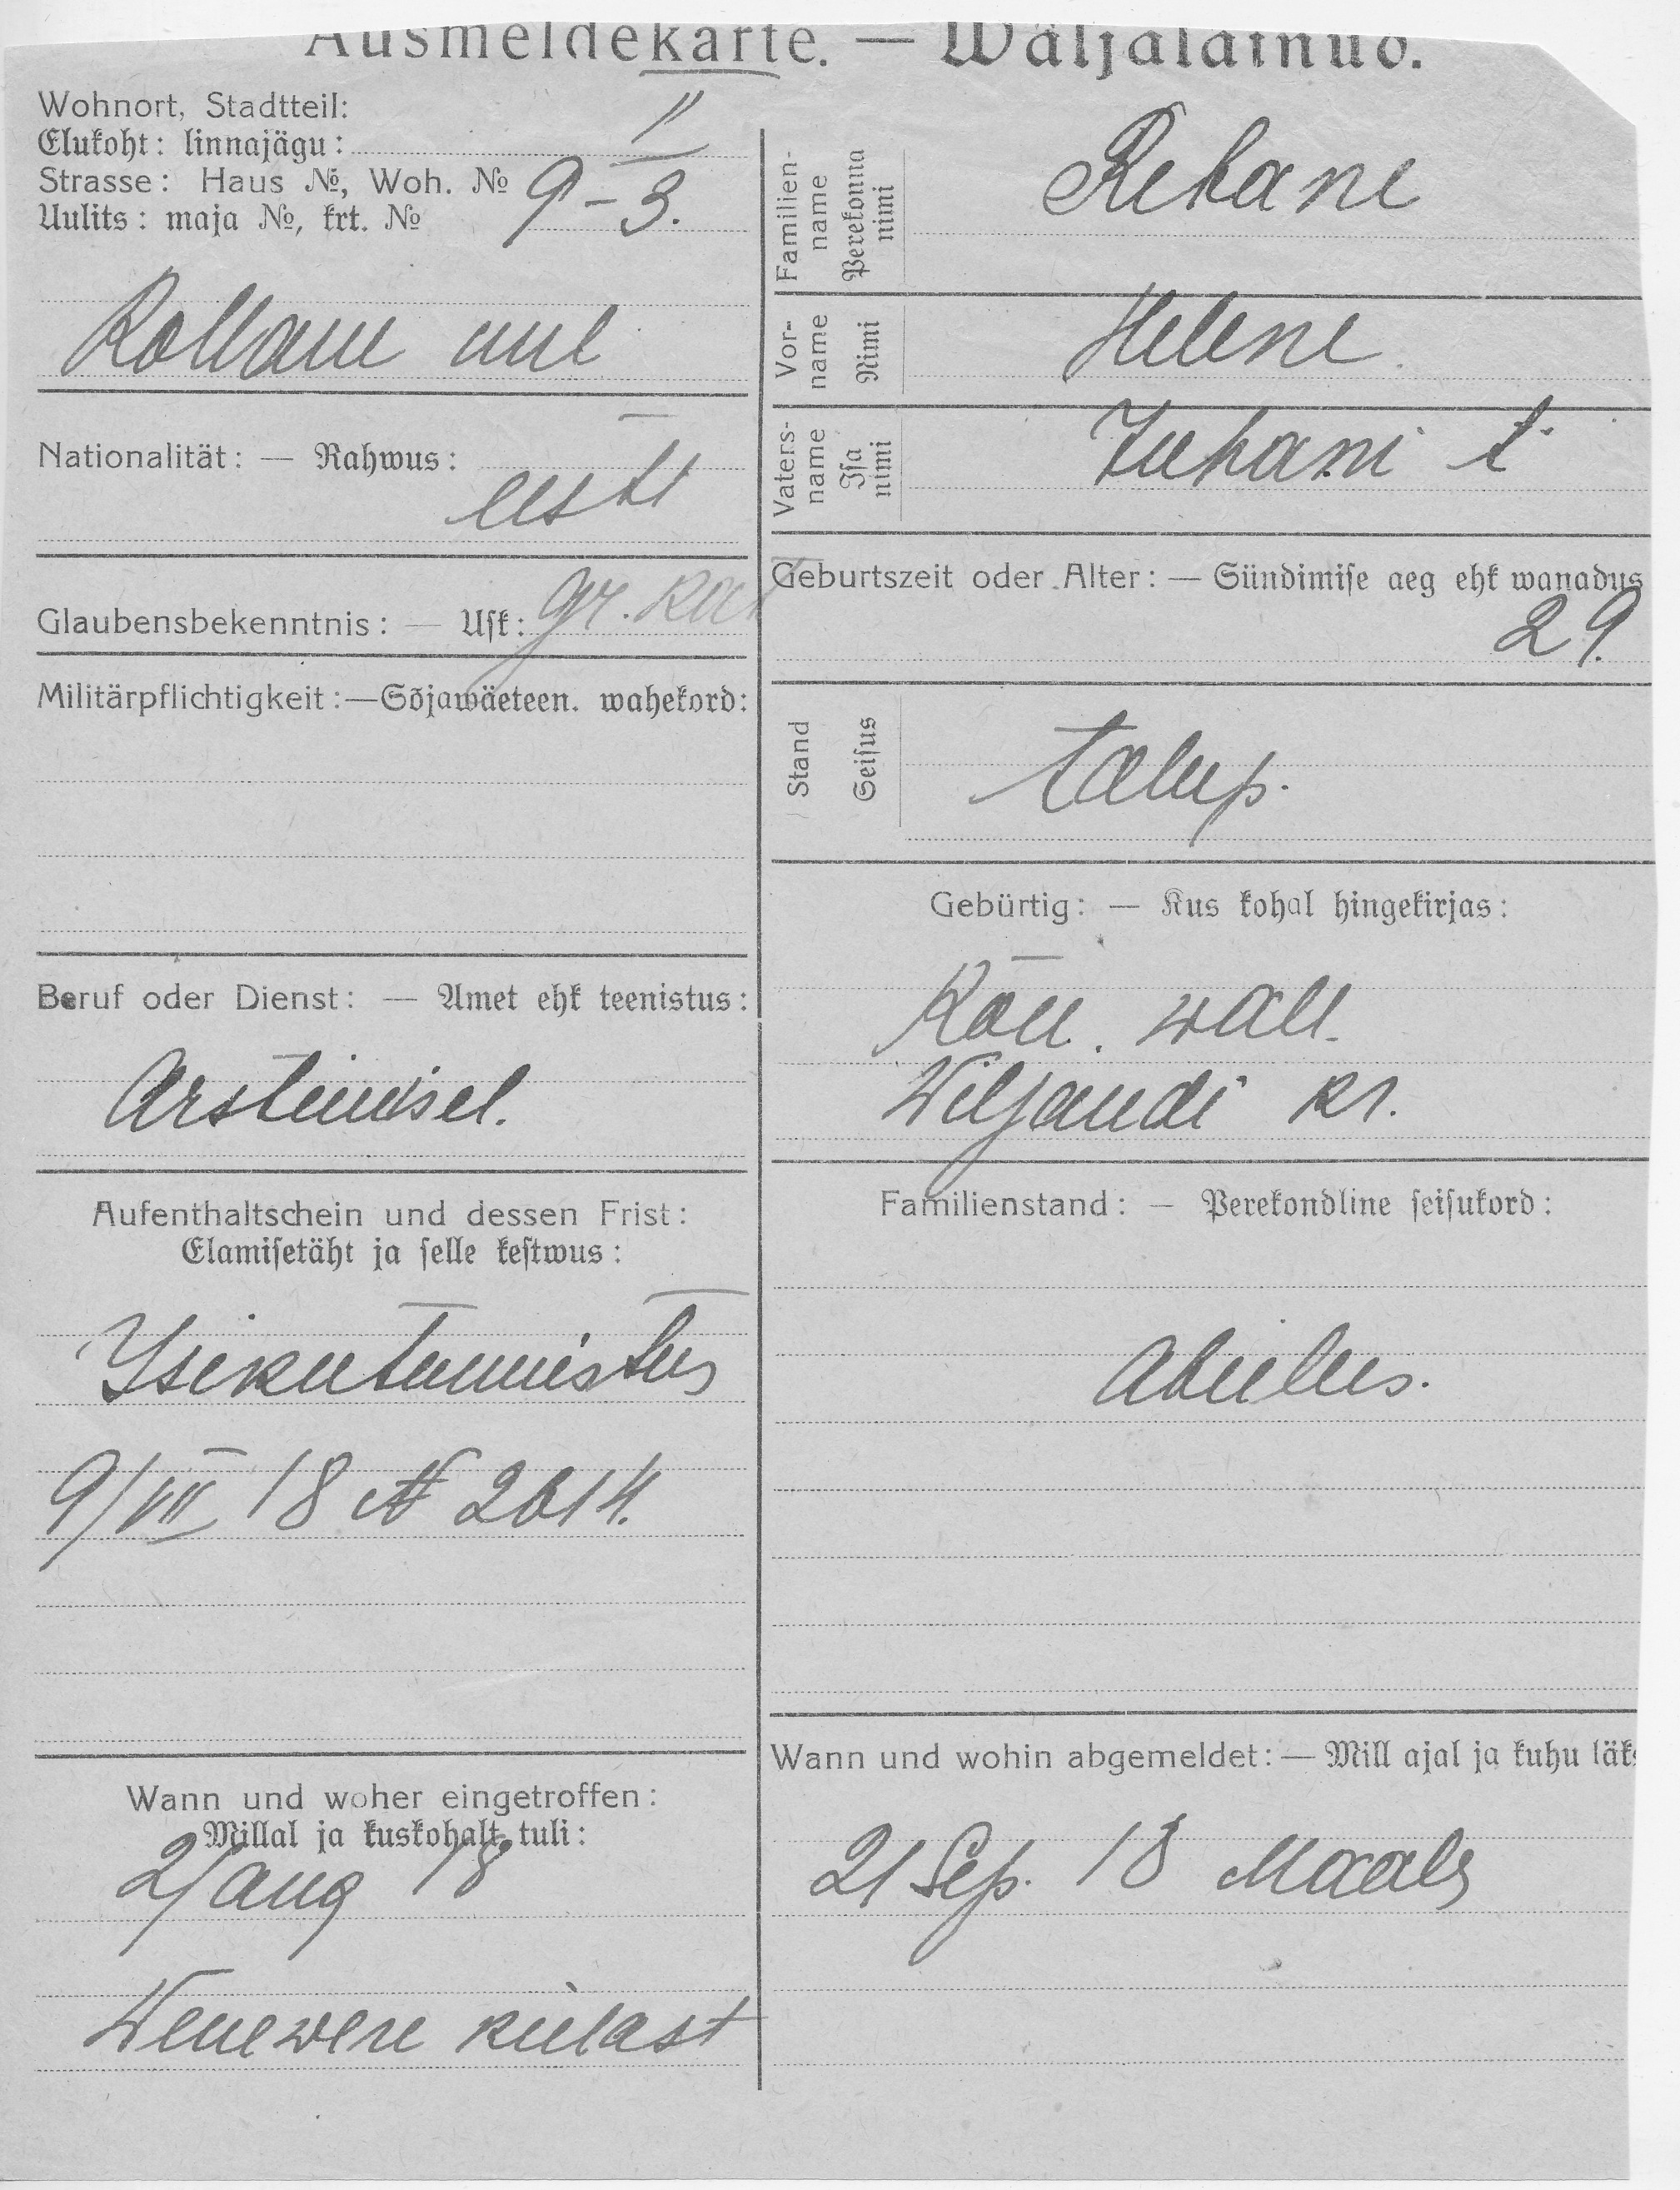 Ausmeldekarte. — Wäljaläinud.
Wohnort, Stadtteil:
Elukoht: linnajägu: II
Strasse: Haus №, Woh. №
Uulits: maja №, krt. № 9 – 3.
uul
Nationalität: — Rahwus:
eesti
Glaubensbekenntnis: — Usk: gr. kat
Militärpflichtigkeit: — Sõjawäeteen. wahekord:
Beruf oder Dienst: — Amet ehk teenistus:
Aufenthaltschein und dessen Frist:
Elamisetäht ja selle kestwus:
Isikutunnistus
9/VII 18 № 2614.
Wann und woher eingetroffen:
Millal ja kuskohalt tuli:
2/aug 18
Wenewere külast
Familien-
name
Perekonna
nimi
Rebane
Vor-
name
Nimi
Helene
Vaters-
name
Isa
nimi
Juhani t.
Geburtszeit oder Alter: — Sündimise aeg ehk wanadus
29.
Stand
Seisus
talup.
Gebürtig: — Kus kohal hingekirjas:
Kõu. wall.
Wiljandi kr.
Familienstand: — Perekondline seisukord:
Abielus.
Wann und wohin abgemeldet: — Mill ajal ja kuhu läks
21 Sep. 18 Maale